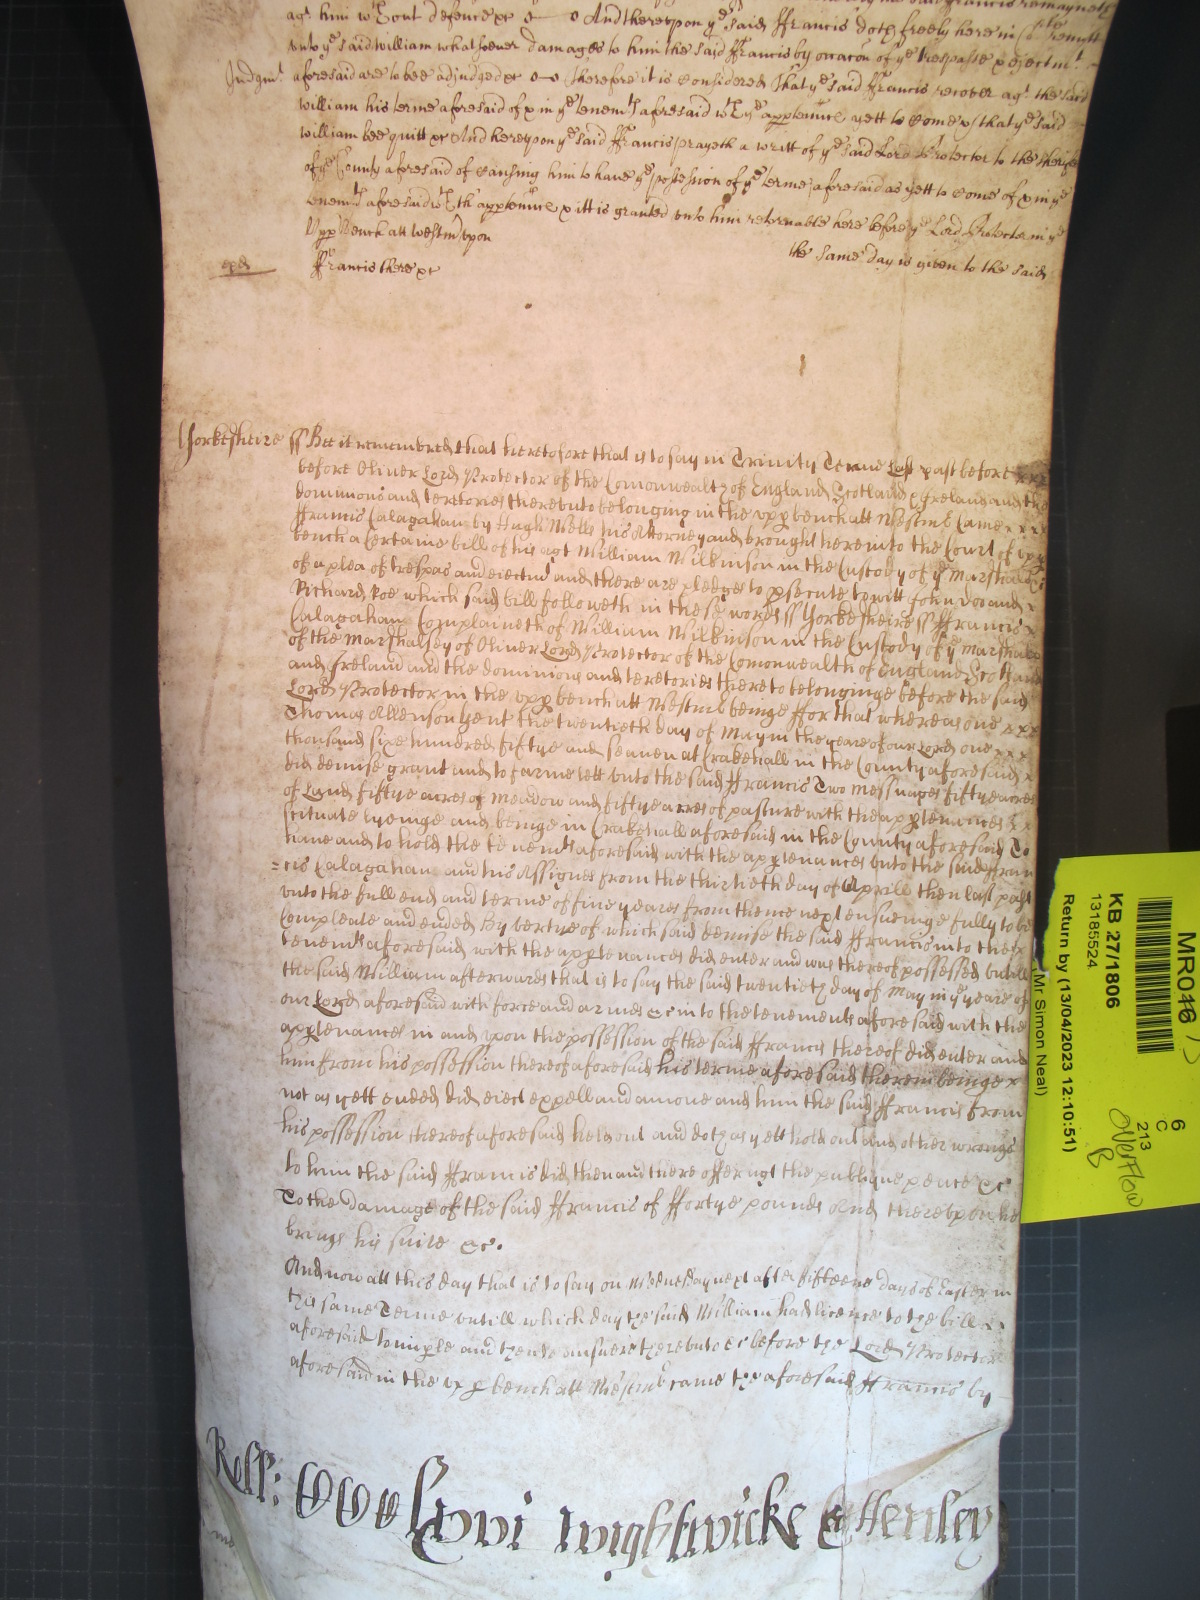 agt him wthout defence &c And thereupon ye said ffrancis doth freely here in Remitt
unto ye said William whatsoever damages to him the said ffrancis by occacon of ye trespasse & ejectmt
Judgmt aforesaid are to bee adjudged &c Therefore it is Considered That ye said ffrancis recover agt the said
William his terme aforesaid of & in ye tenemts aforesaid wth ye apptenncs yett to Come & that ye said
William bee quitt &c And hereupon ye said ffrancis prayeth a writt of ye said Lord Protector to the Sheriffe
of ye County aforesaid of Causing him to have ye possession of ye terme aforesaid as yett to Come of & in ye
tenemts aforesaid wth th apptenncs & itt is granted unto him retornable here before ye Lord Protector in ye
Upp Bench att Westmr upon the same day is given to the said
ffrancis there &c
Yorkesheire ss Bee it remembred that heretofore that is to say in Trinity Terme last past before
before Oliver Lord Protector of the Comonwealth of England Scotland & Ireland and the
dominions and teretories thereunto belonging in the upp bench att Westmr Came
ffrancis Calagahan by Hugh Wells his Attorney and brought here into the Court of upp
bench a Certaine bill of his agt William Wilkinson in the Custody of ye Marshall &c
of a plea of trespas and ejectmt and there are pledges to psecute to witt John Doo and
Richard Roe which said bill followeth in these words ss Yorkesheire ss ffrancis
Calagahan Complaineth of William Wilkinson in the Custody of ye Marshall
of the Marshalsey of Oliver Lord Protector of the Comonwealth of England Scotland
and Ireland and the dominions and teretories thereto belonginge before the said
Lord Protector in the upp bench att Westmr beinge ffor that whereas one
Thomas Allenson Gent the twentieth day of May in the yeare of our Lord one
thousand sixe hundred fiftye and seaven at Crakehall in the County aforesaid
did demise grant and to farme lett unto the said ffrancis Two messuages fiftye acres
of Land fiftye acres of meadow and fiftye acres of pasture with the apptenances
scituate lyeinge and beinge in Crakehall aforesaid in the County aforesaid To
have and to hold the tenemts aforesaid with the apptenances unto the said ffran
=cis Calagahan and his Assignes from the thirtieth day of Aprill then last past
unto the full end and terme of five yeares from thence next ensueinge fully to be
Compleate and ended By vertue of which said demise the said ffrancis into the
tenemts aforesaid with the apptenances did enter and was thereof possessed untill
the said William afterwards that is to say the said twentieth day of May in ye yeare of
our Lord aforesaid with force and armes &c into the tenements aforesaid with the
apptenances in and upon the possession of the said ffrancis thereof did enter and
him from his possession thereof aforesaid his terme aforesaid therein beinge
not as yett ended did eject expell and amove and him the said ffrancis from
his possession thereof aforesaid held out and doth as yett hold out and other wrongs
to him the said ffrancis did then and there offer agt the publique peace &c
To the damage of the said ffrancis of ffortye pounds And thereupon he
brings his suite &c.
And now att this day that is to say on Wednesday next after fifteene days of Easter in
this same Terme untill which day the said William had licence to the bill
aforesaid to imple and then to answere thereunto &c before the Lord Protector
aforesaid in the upp bench att Westmr came the aforesaid ffrancis by
Wightwicke & Henley
MR046
6
C
213
Overflow
B
KB 27/1806
13185524
Return by (13/04/2023 12:10:51)
(Mr Simon Neal)